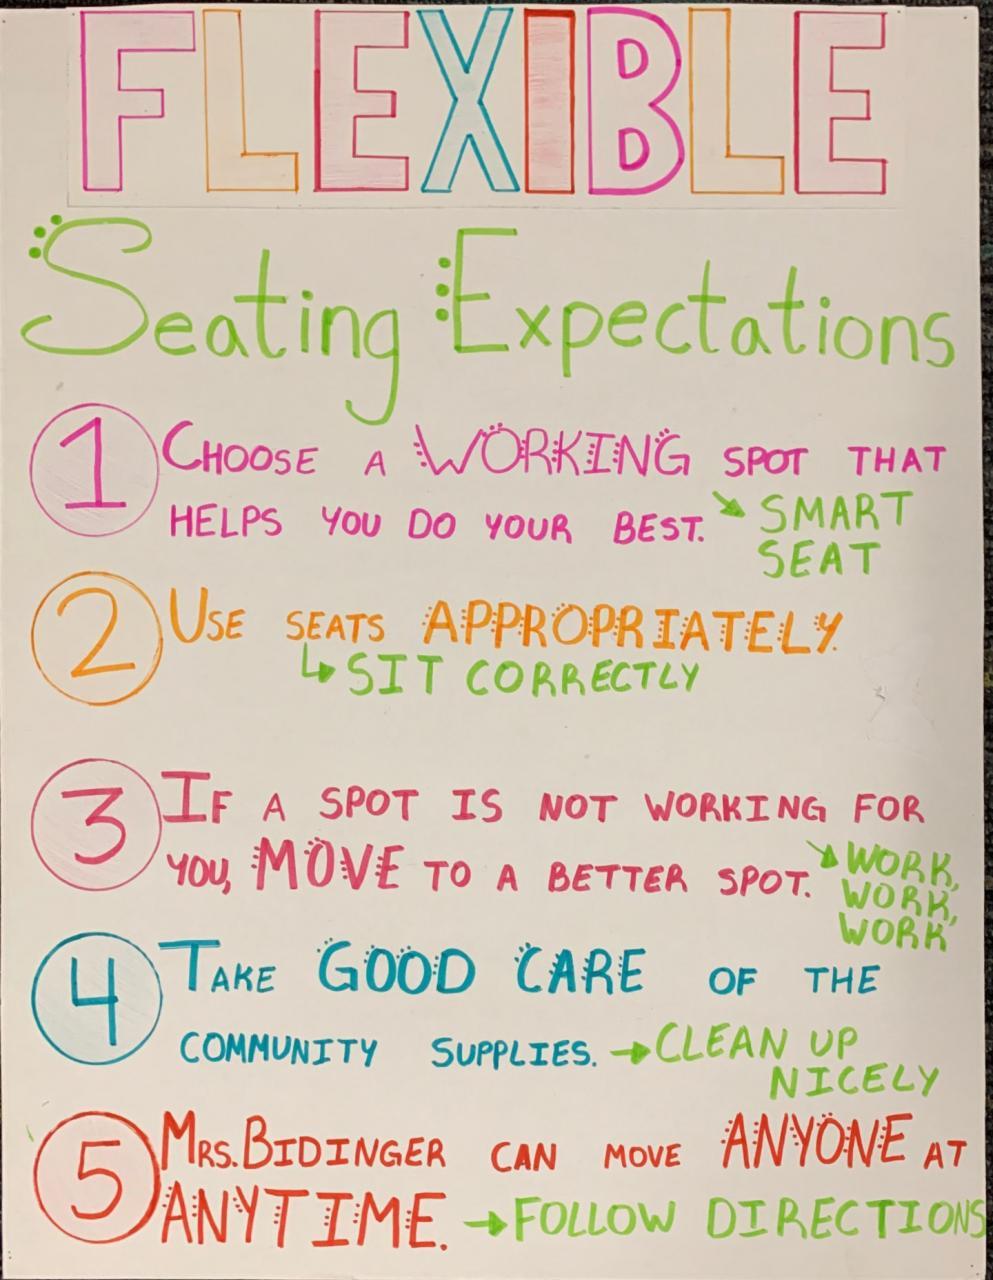 FLEXIBLE
Seating Expectations
1 CHOOSE A WORKING SPOT THAT
HELPS YOU DO YOUR BEST. → SMART
SEAT
2 USE SEATS APPROPRIATELY.
↳ SIT CORRECTLY
3 IF A SPOT IS NOT WORKING FOR
YOU, MOVE TO A BETTER SPOT. → WORK,
WORK,
WORK
4 TAKE GOOD CARE OF THE
COMMUNITY SUPPLIES. → CLEAN UP
NICELY
5 MRS. BIDINGER CAN MOVE ANYONE AT
ANYTIME. → FOLLOW DIRECTIONS